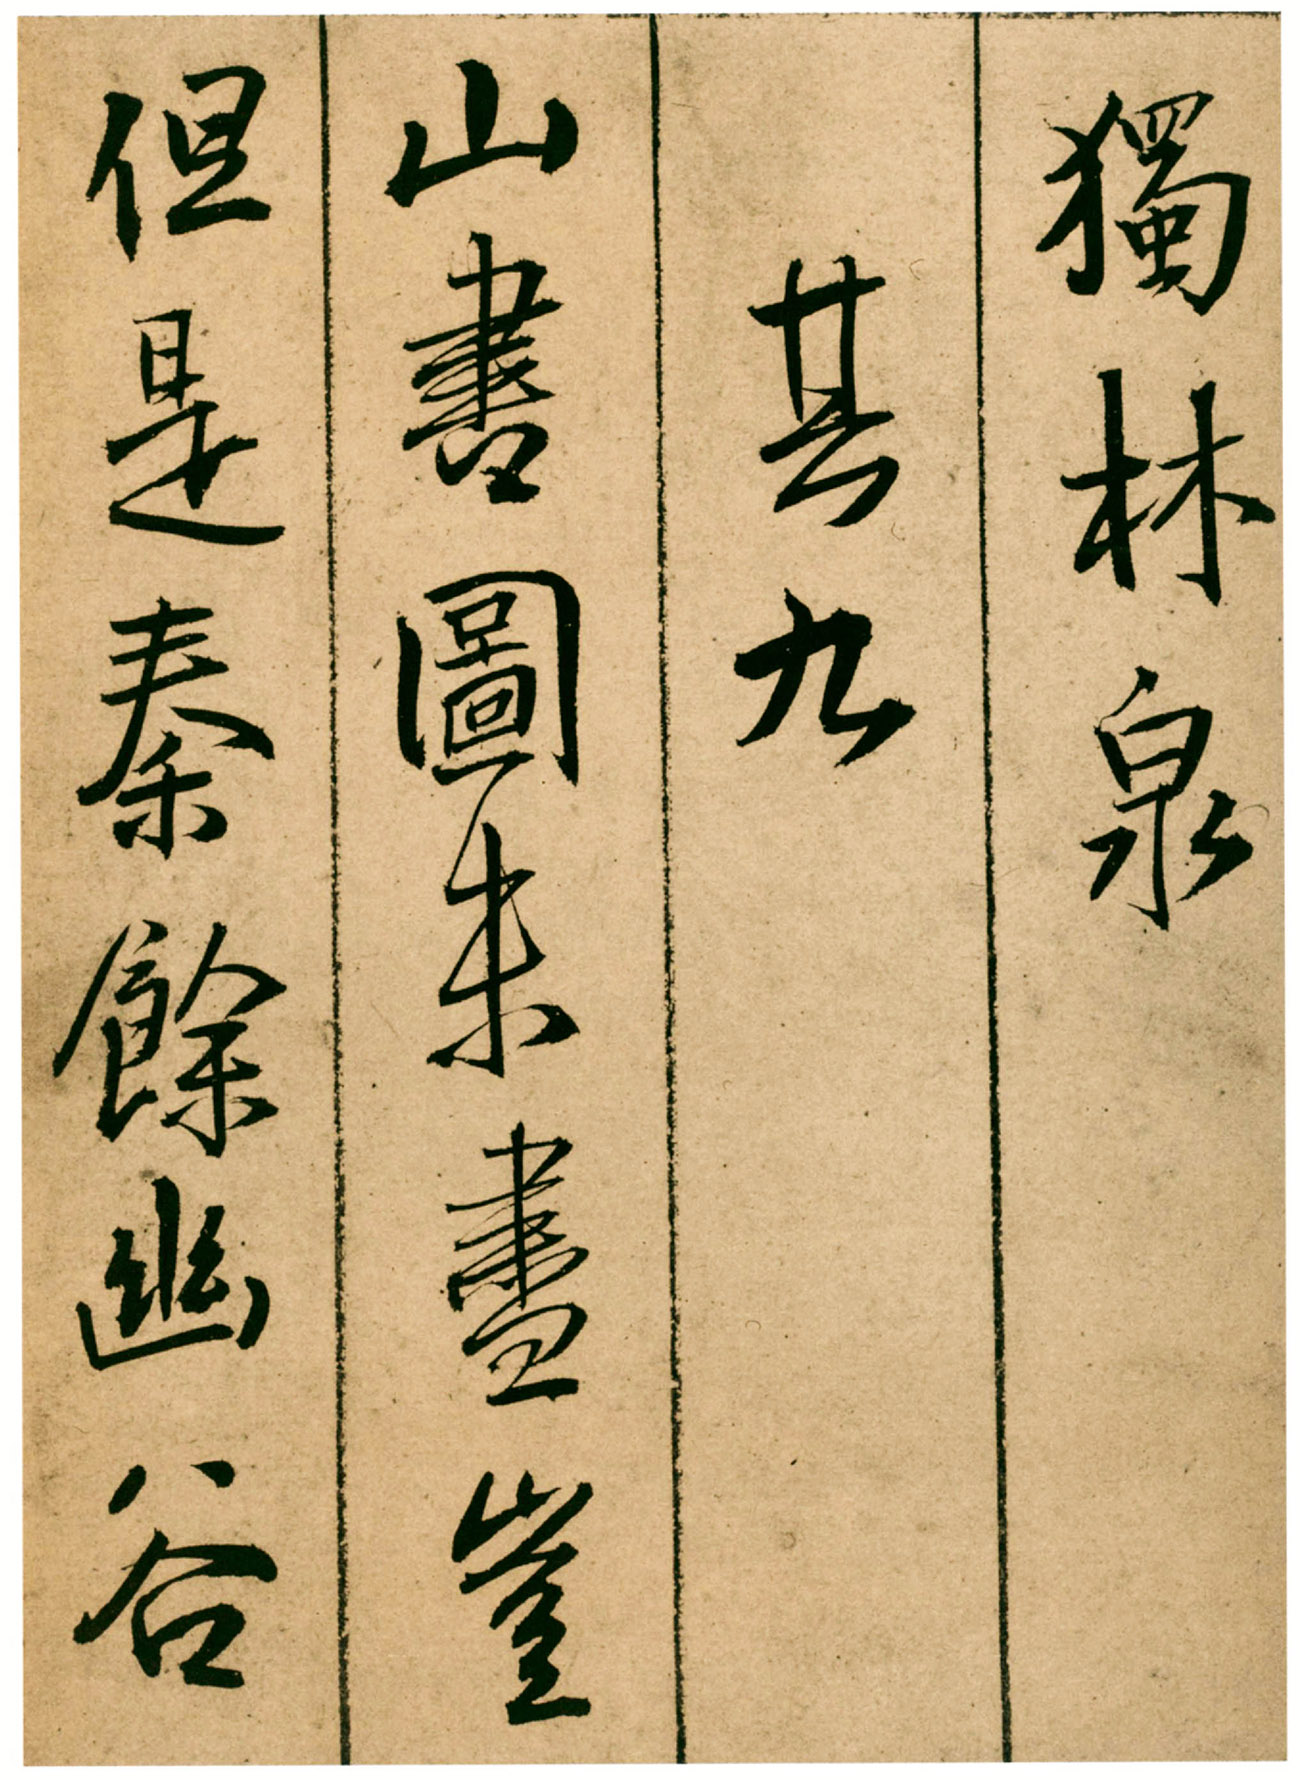 獨林泉
其九
山書圖朱畫豈
但是秦餘幽谷